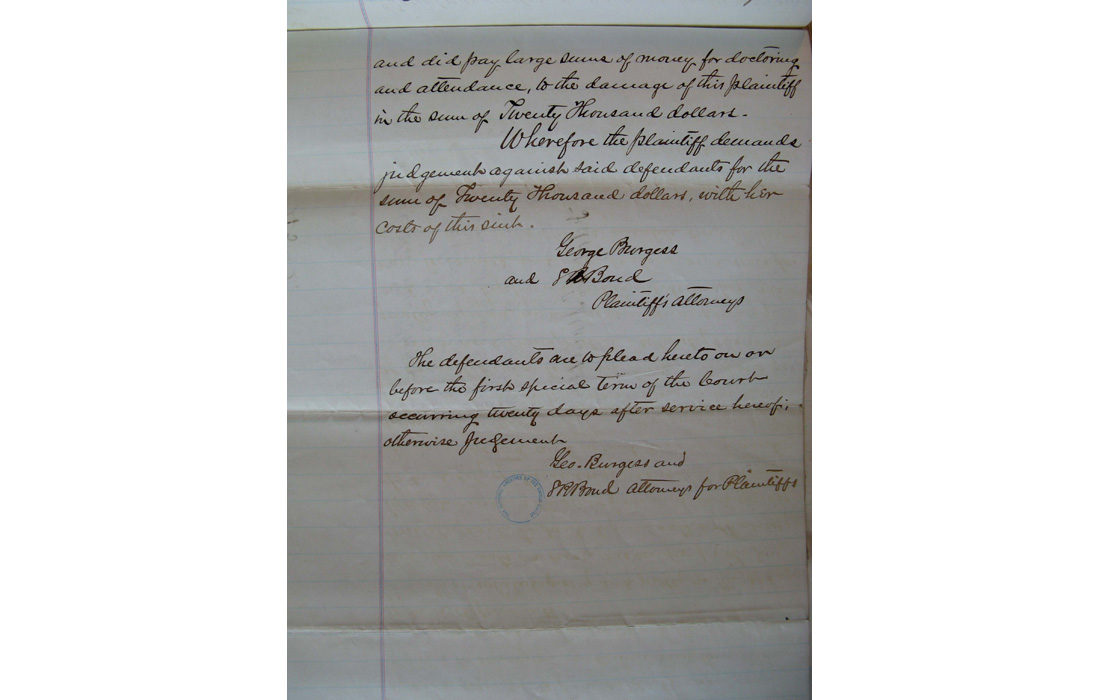 and did pay large sums of money for doctoring
and attendance, to the damage of this plaintiff
in the sum of Twenty Thousand dollars.
Wherefore the plaintiff demands
judgement against said defendants for the
sum of Twenty Thousand dollars, with her
costs of this suit.
George Burgess
and E R Bond
Plaintiff's attorneys
The defendants are to plead hereto on or
before the first special term of the Court
occurring twenty days after service hereof;
otherwise judgement
Geo. Burgess and
E R Bond attorneys for Plaintiffs